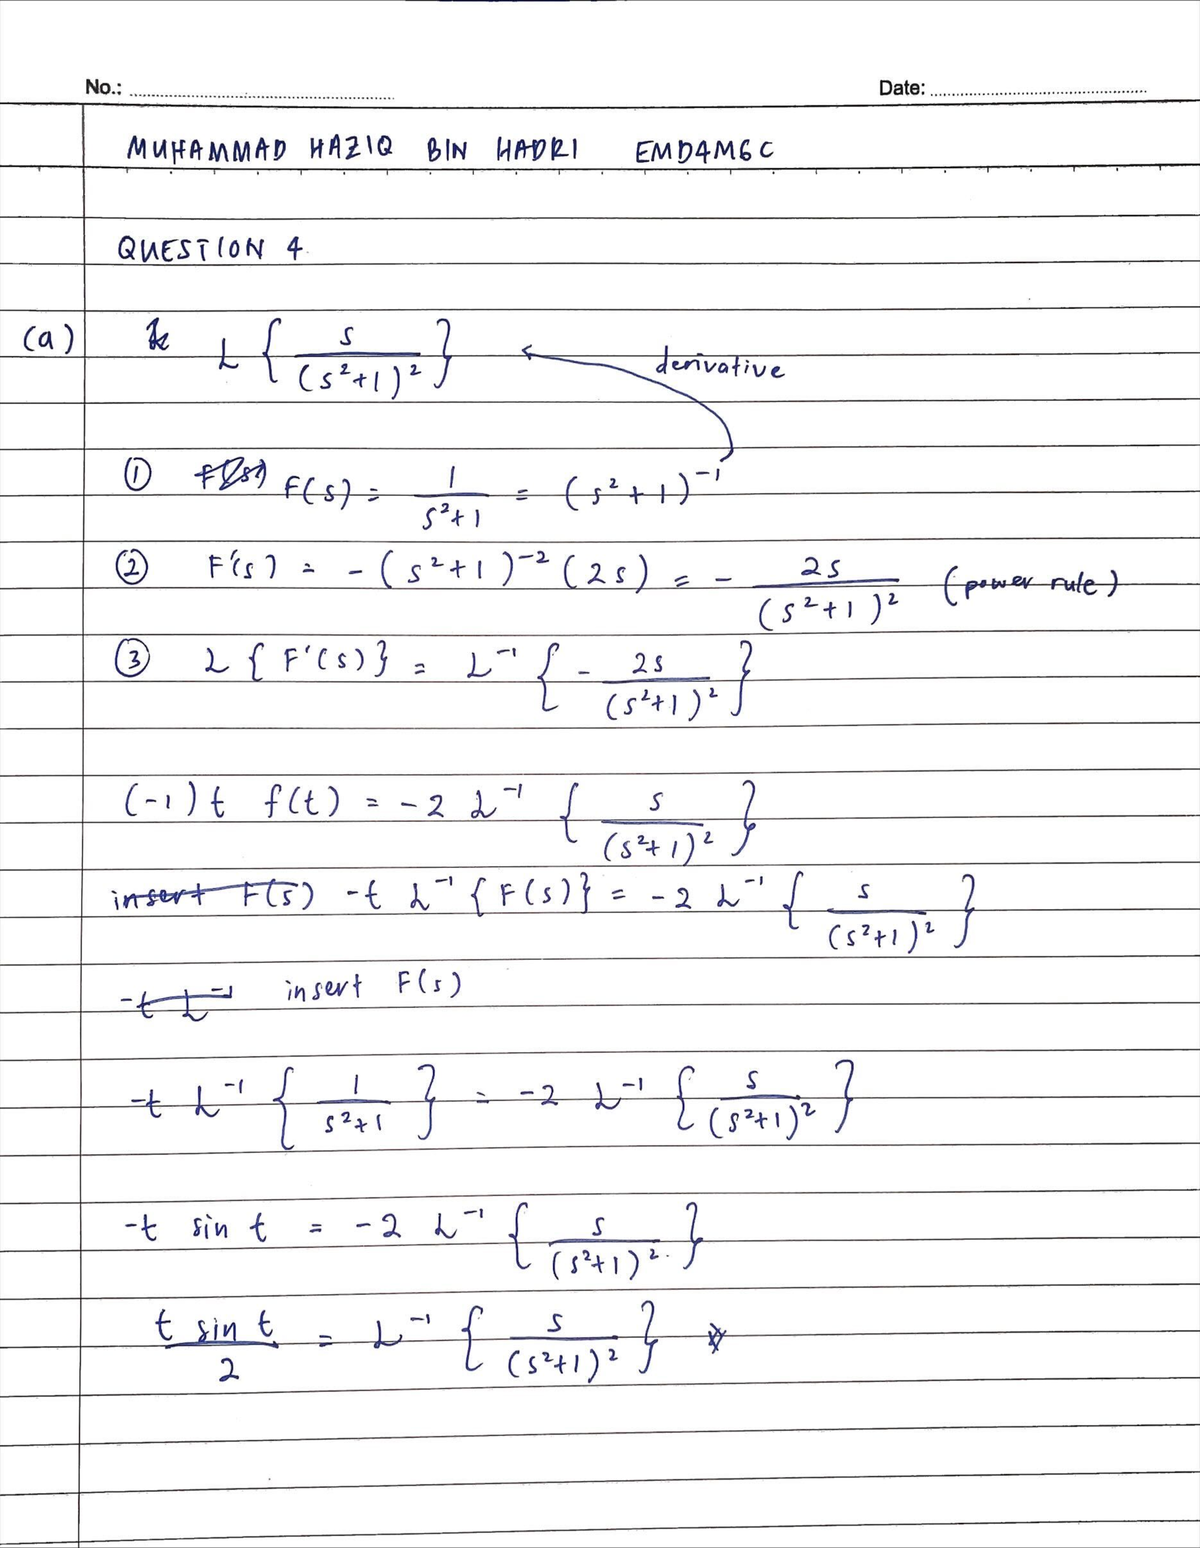 No.: Date:
MUHAMMAD HAZIQ BIN HADRI EMD4M6C
QUESTION 4.
(a) L { s / (s²+1)² } derivative
① F(s) = 1 / s²+1 = (s²+1)⁻¹
② F'(s) = -(s²+1)⁻² (2s) = - 2s / (s²+1)² (power rule)
③ L { F'(s) } = L⁻¹ { - 2s / (s²+1)² }
(-1) t f(t) = -2 L⁻¹ { s / (s²+1)² }
insert F(s) -t L⁻¹ { F(s) } = -2 L⁻¹ { s / (s²+1)² }
-t L⁻¹ insert F(s)
-t L⁻¹ { 1 / s²+1 } = -2 L⁻¹ { s / (s²+1)² }
-t sin t = -2 L⁻¹ { s / (s²+1)². }
t sin t / 2 = L⁻¹ { s / (s²+1)² }